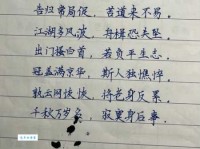 告归常局促，苦道来不易。
江湖多风波，舟楫恐失坠。
出门搔白首，若负平生志。
冠盖满京华，斯人独憔悴。
孰云网恢恢，将老身反累。
千秋万岁名，寂寞身后事。